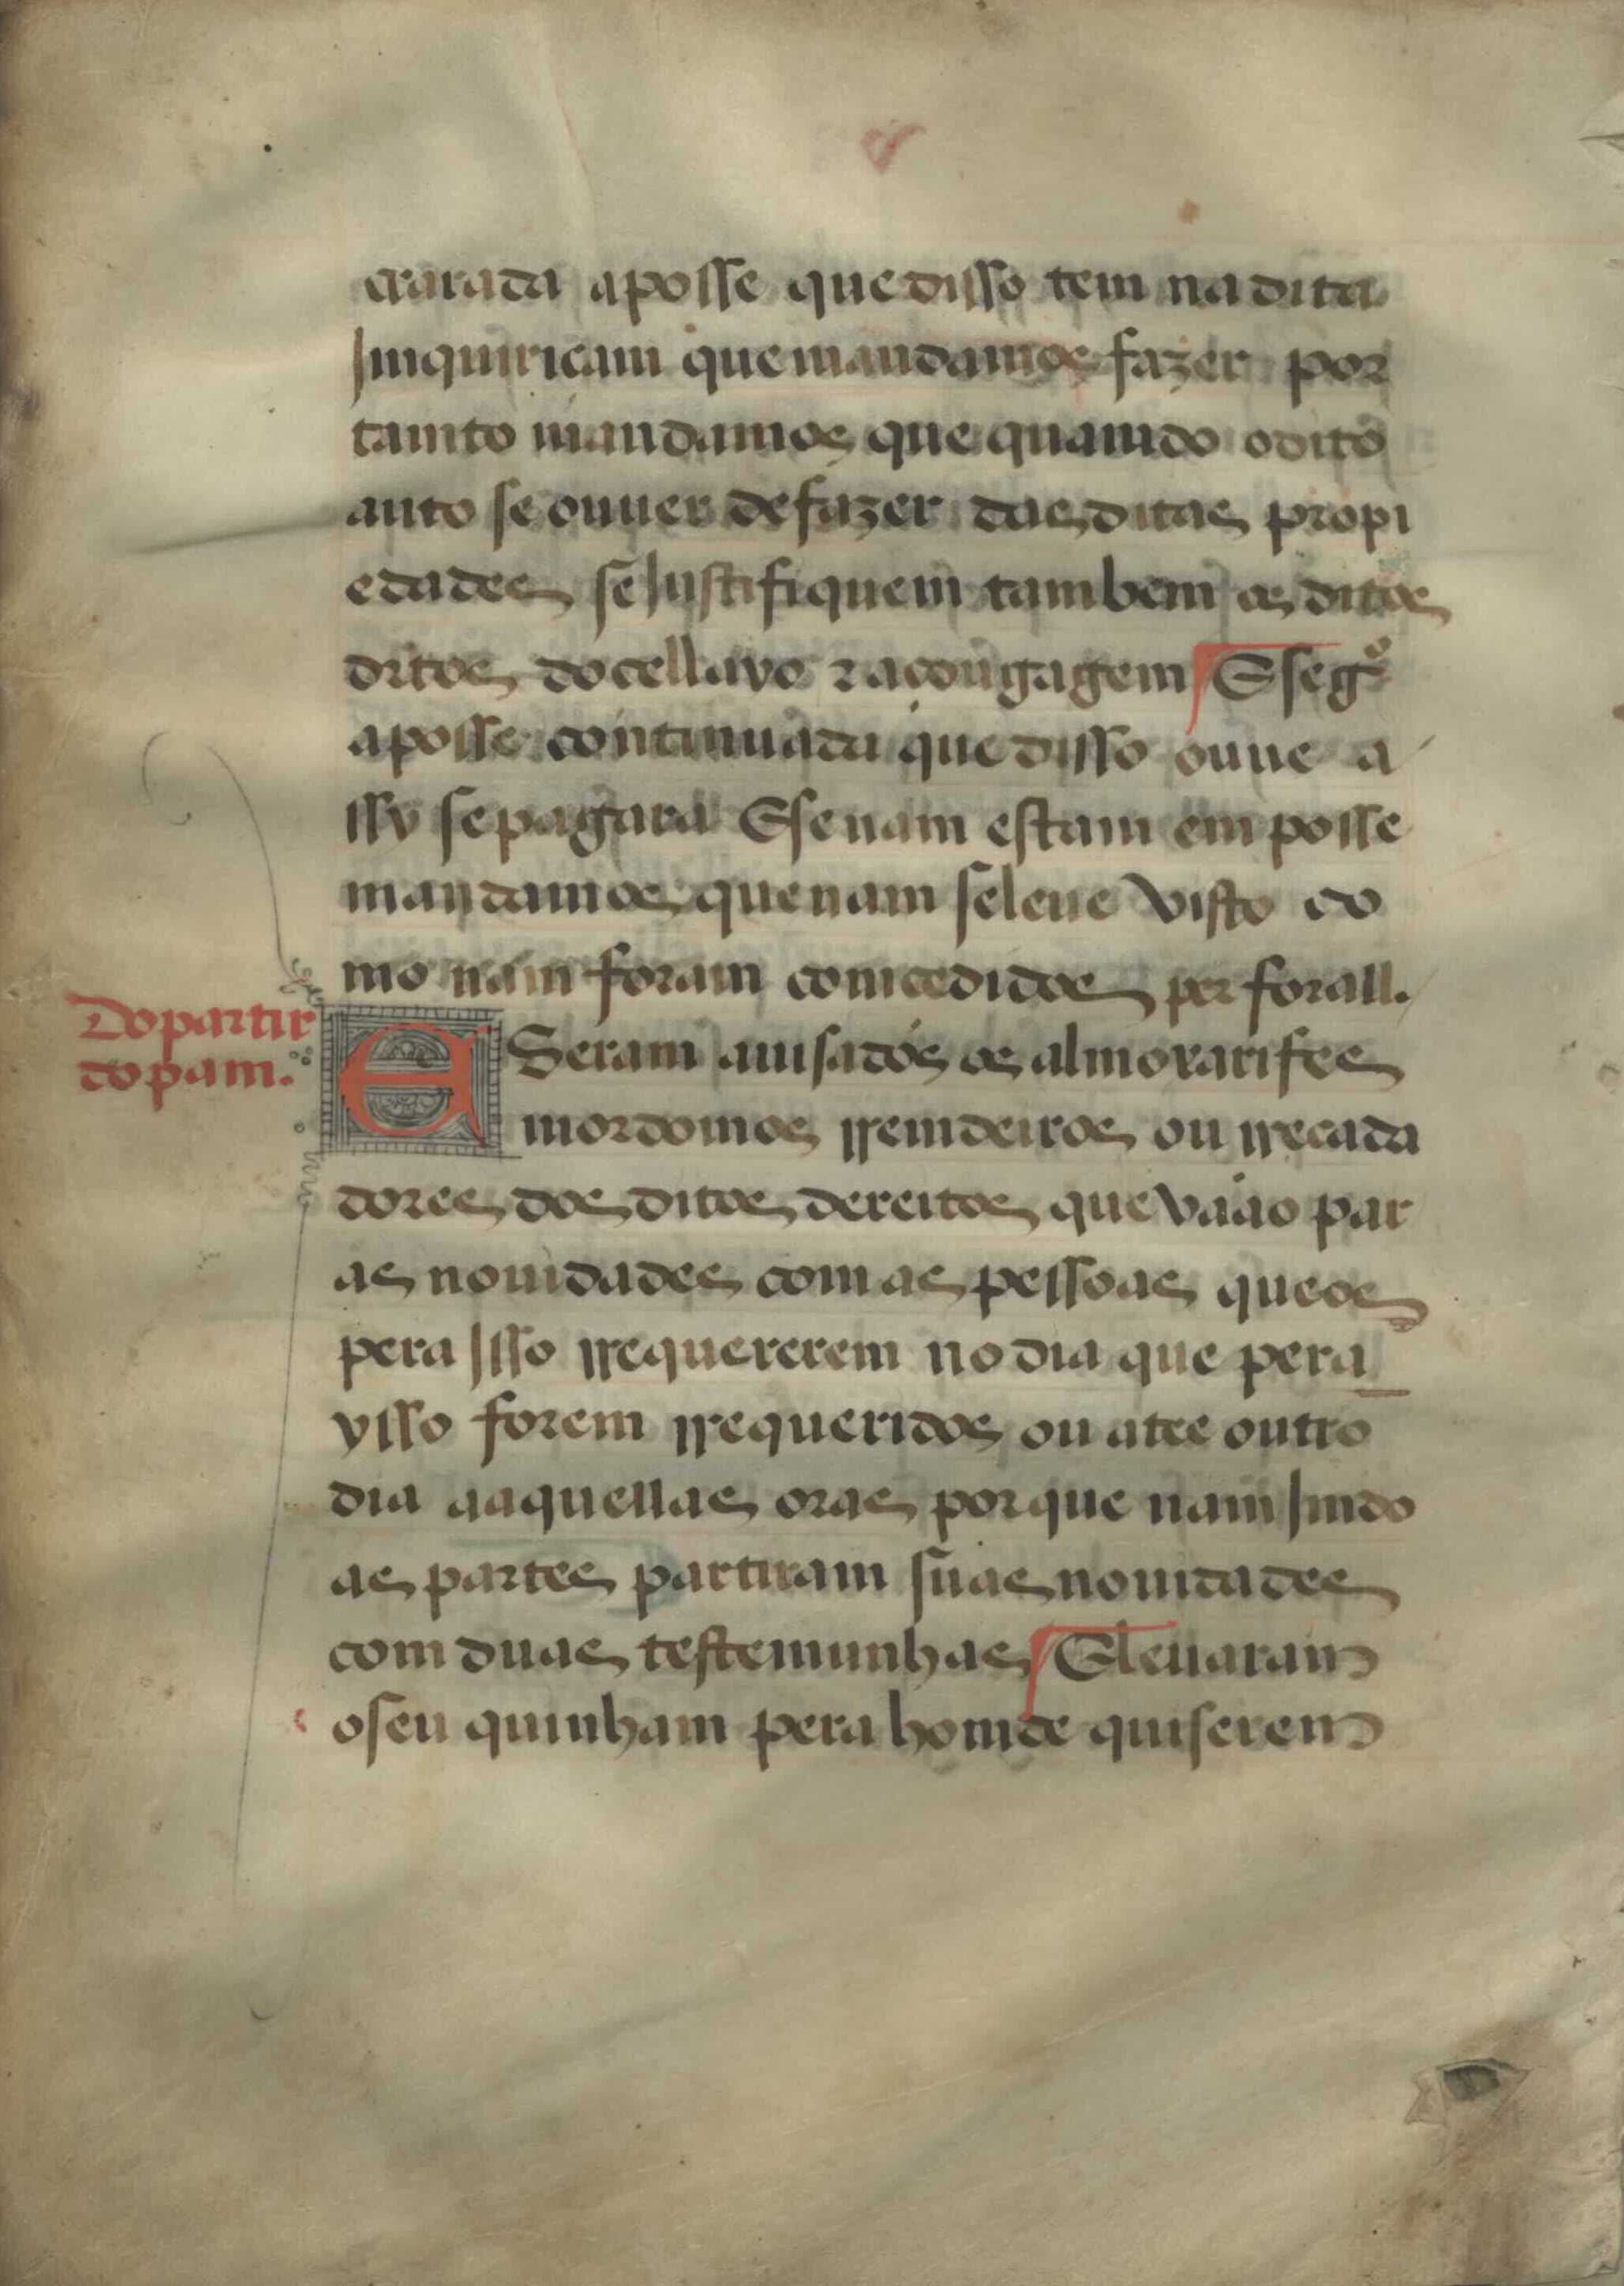 crarada aposse que disso tem na dita
Jmquiricam que mandamos fazer por
tamto mandamos que quamdo o dito
auto se ouuer de fazer das ditas propi
edades se Justifiquem tambem os ditos
ditos do cellayo ⁊ açougagem E seg.º
a posse continuada que disso ouue a
ssy se pagara E se nam estam em posse
mandamos que nam se leue visto co
mo nam foram comcedidos per forall.
Do partir
do pam.
E Seram auisados os almoxarifes
mordomos rremdeiros ou rrecada
dores dos ditos dereitos que vaão par
as nouidades com as pessoas que os
pera Jsso rrequererem no dia que pera
ysso forem rrequeridos ou atee outro
dia aaquellas oras porque nam Jmdo
as partes partiram suas nouidades
com duas testemunhas E leuaram
o seu quinham pera homde quiserem